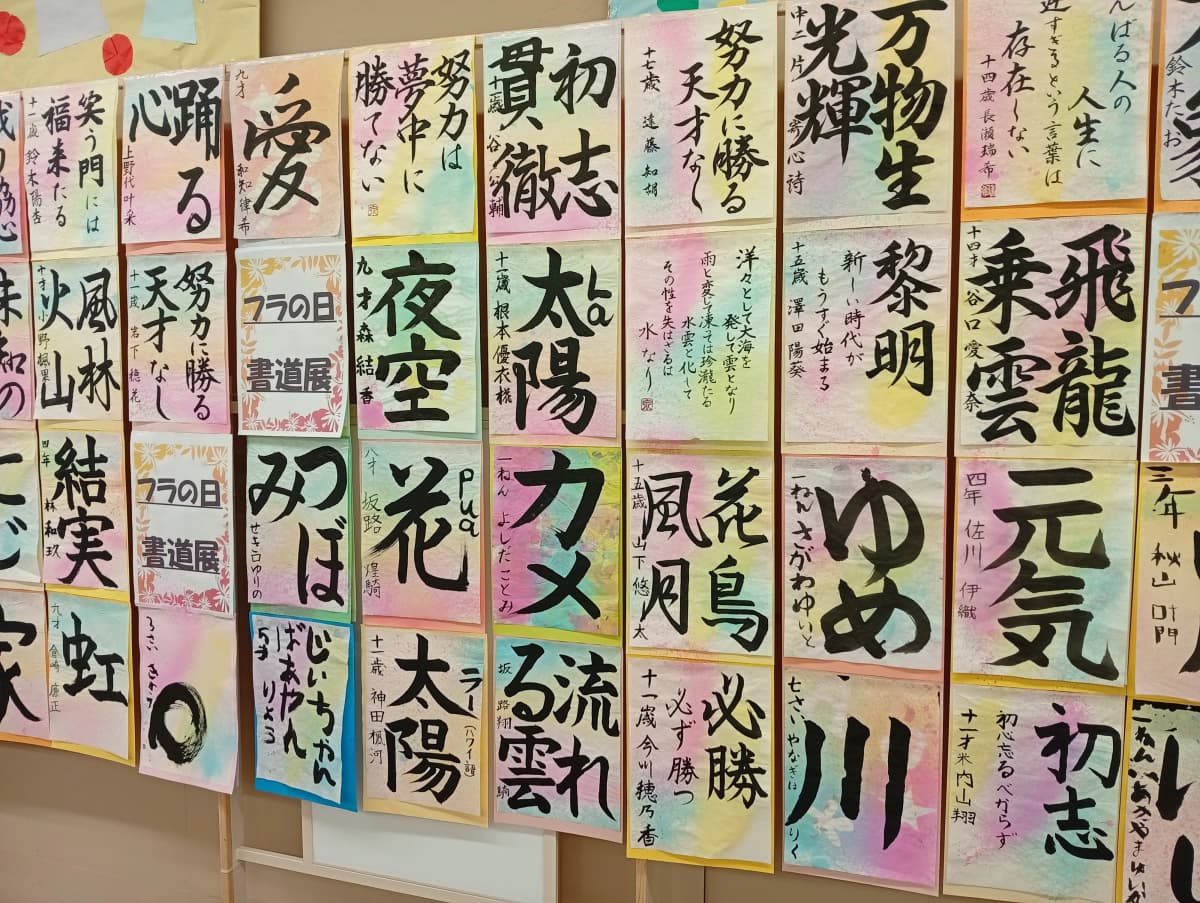 笑う門には
福来たる
十一歳 鈴木陽杏
踊る
心
上野代叶采
愛
九才
和知律希
努力は
夢中に
勝てない
初志
貫徹
努力に勝る
天才なし
十七歳 遠藤 知胡
万物生
光輝
んばる人の
人生に
近すぎるという言葉は
存在しない
十四歳 長瀬瑞希
鈴木たお
風林
火山
努力に勝る
天才なし
十一歳 岩下 穂花
フラの日
書道展
夜空
九才 森 結香
La
太陽
十一歳 根本優衣
洋々として大海を
発して雲となり
雨と変じて凍そは玲瓏たる
水雲と化して
その性を失はざるは
水なり
黎明
新しい時代が
もうすぐ始まる
十五歳 澤田 陽葵
飛龍
乗雲
十四才 谷口 愛奈
結実
四年 林
フラの日
書道展
つぼ
み
pua
花
八才 坂路 煌騎
カメ
一ねん よしだ ことみ
花鳥
風月
十五歳 山下 悠太
ゆめ
一ねん さがわ ゆいと
元気
四年 佐川 伊織
三年 秋山 叶門
家
虹
九才
じいちゃん
ばあやん
5才 りょう
ラー(ハワイ語)
太陽
十一歳 神田 楓河
流れ
る雲
坂路翔駒
必勝
必ず勝つ
十一歳 今川穂乃香
川
七さい やなぎは りく
初志
初心忘るべからず
十一才 米内山翔